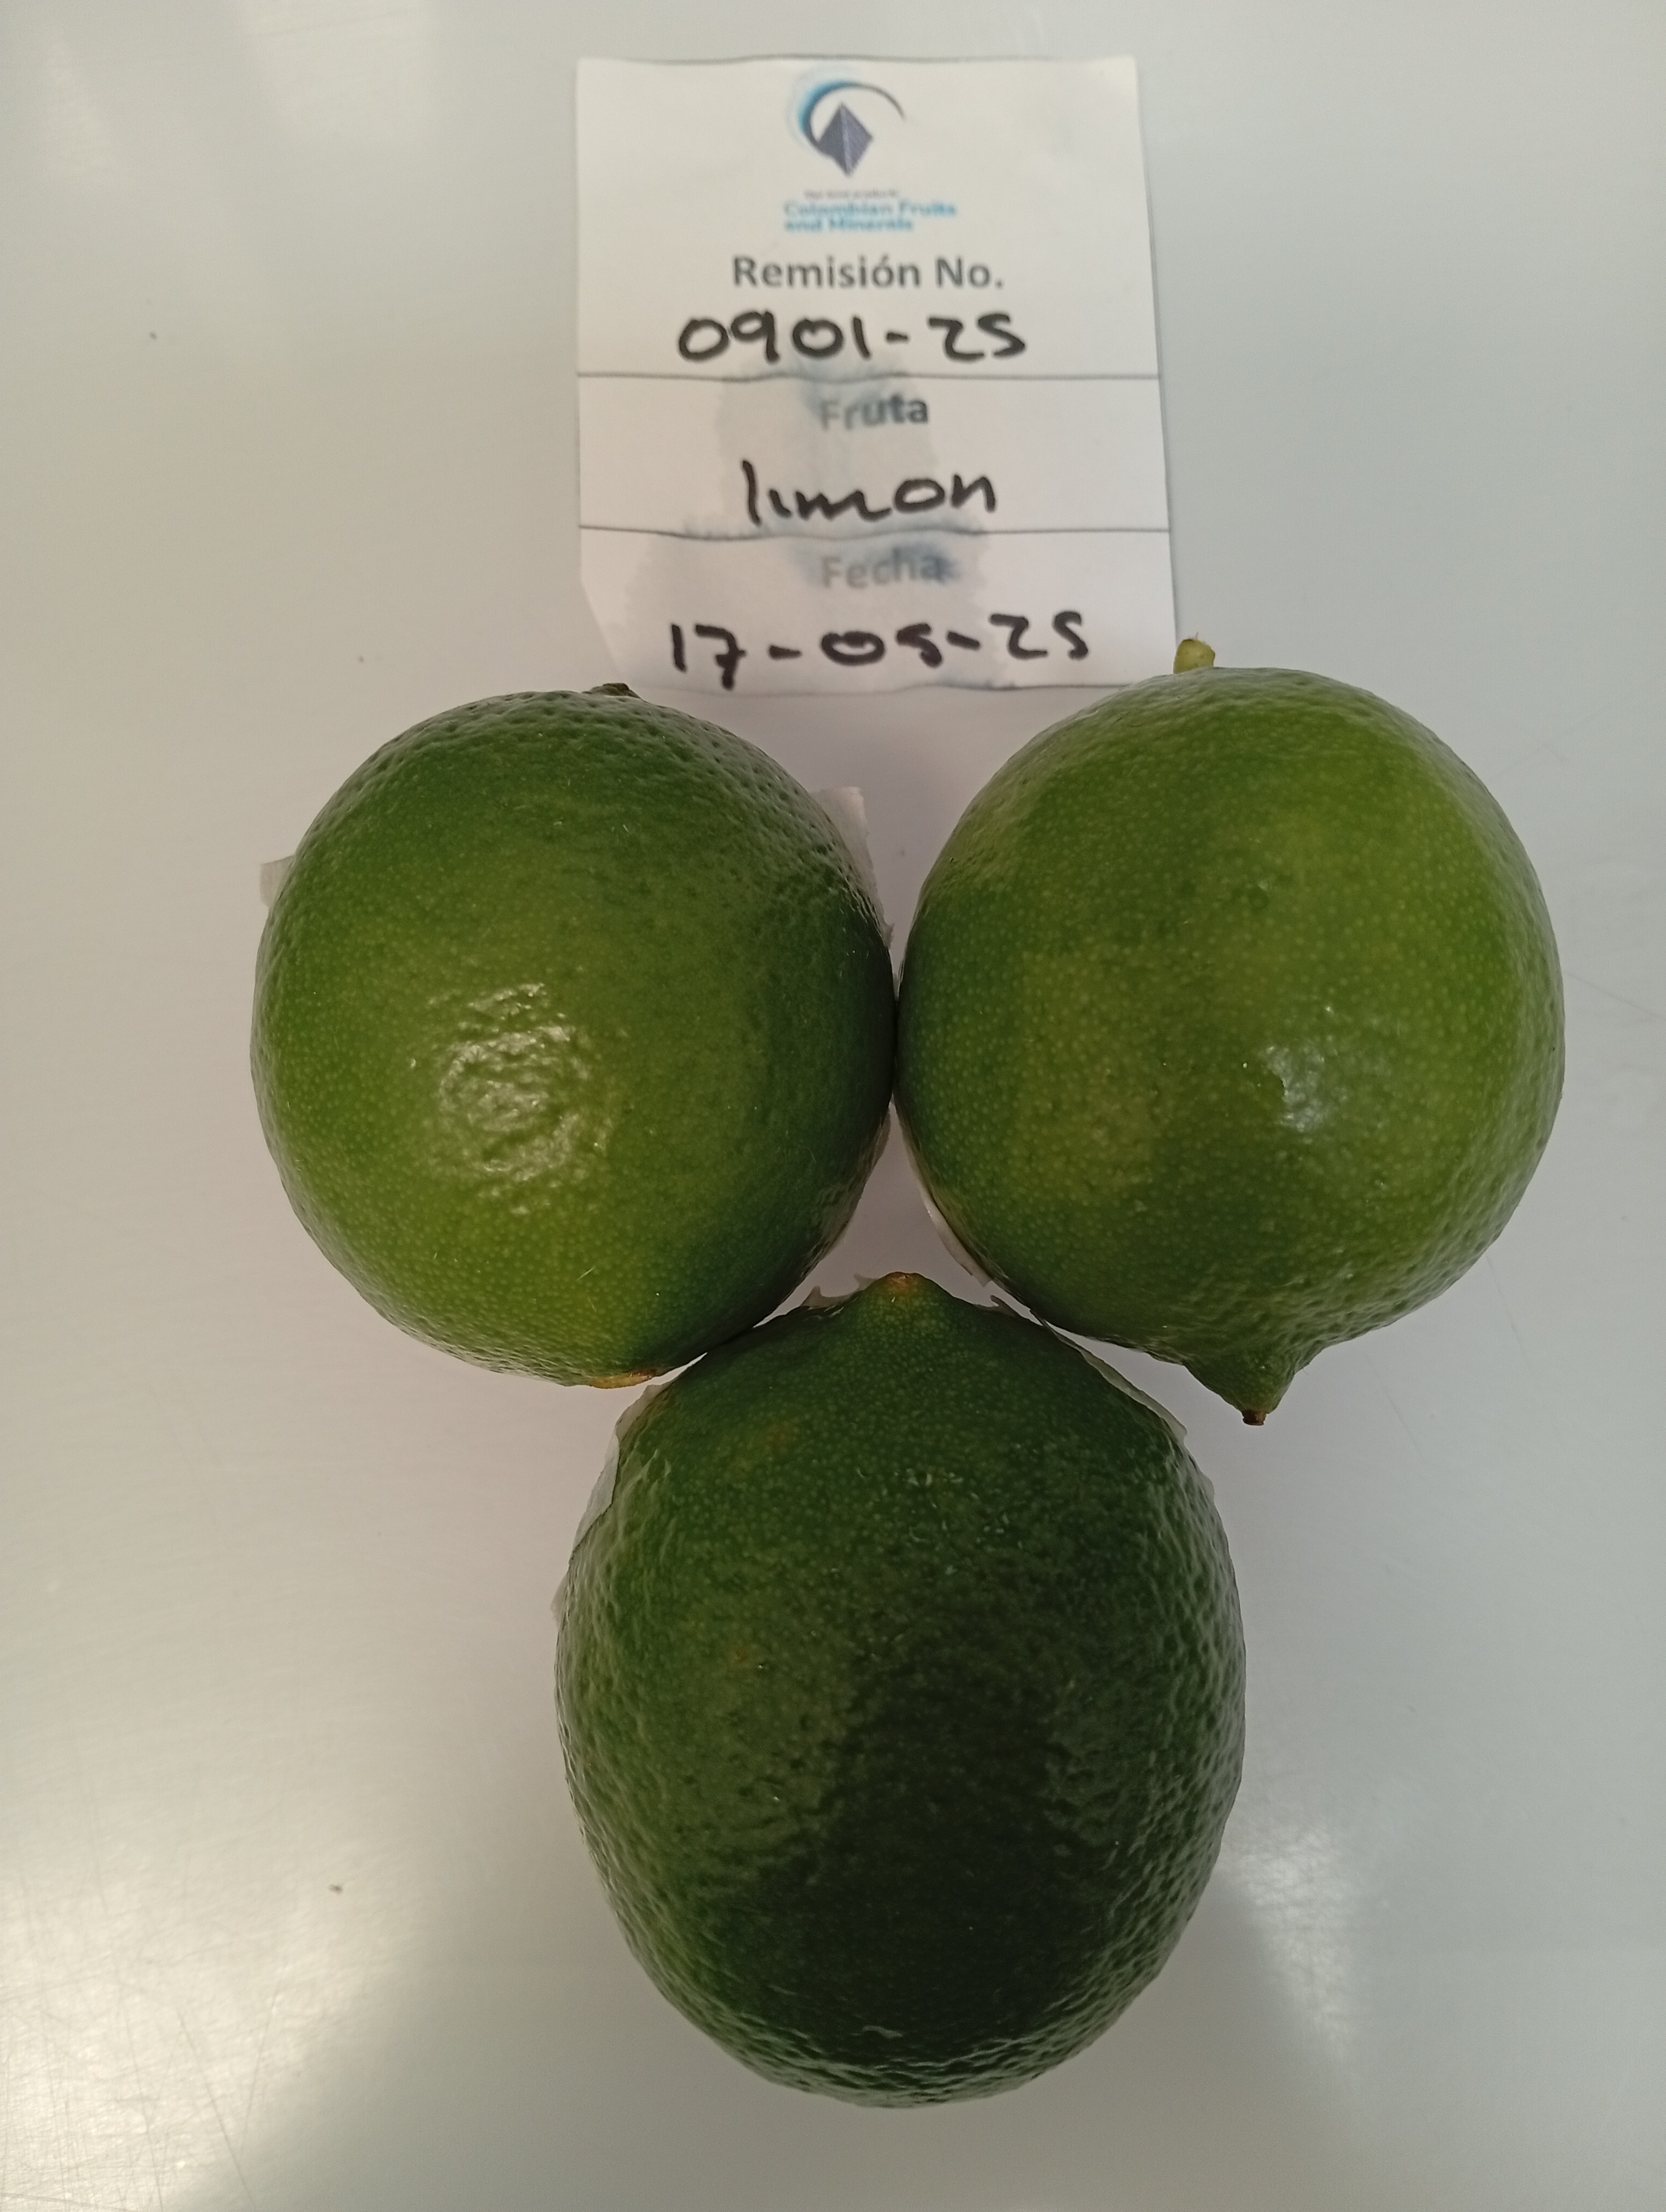 Colombian Fruits
and Minerals
Remisión No.
0901-25
Fruta
limon
Fecha
17-05-25